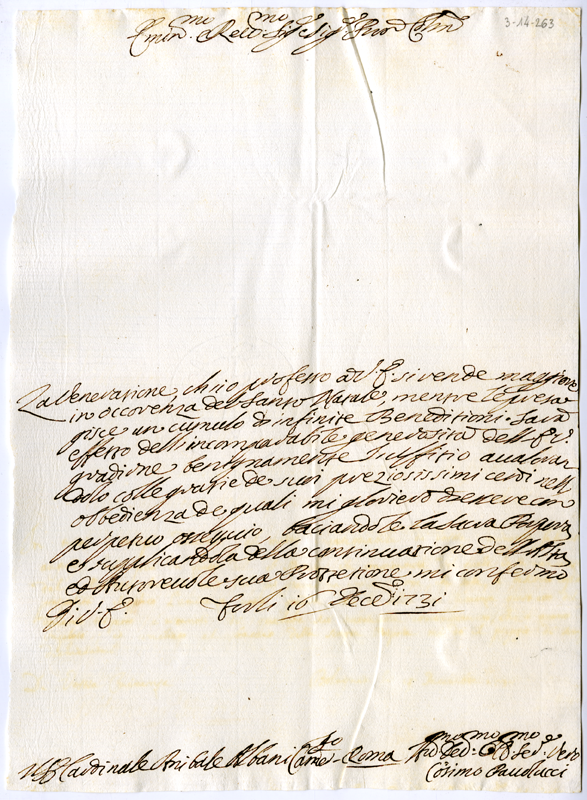 3-14-263
Emin.mo Rev.mo Sig.e Sig.r
La Venerazione, ch'io professo a V. E. si rende maggiore
in occorrenza del Santo Natale, mentre le presa
gisce un cumulo di infinite Beneditioni. Sarà
effetto dell'incomparabile generosità dell' E. V.
gradire benignamente l'uffitio
colle grazie de suoi preziosissimi cenni
obbedienza de quali mi glorierò d'essere con
perpetuo ossequio, baciandole la Sacra Porpora
e supplicandola della continuatione dell'Alta
ed Autorevole sua Protettione mi confermo
Di V. E. Forlì 10 Dece 1731
Cardinale Anibale Albani Came.go Roma
Cosimo Paulucci